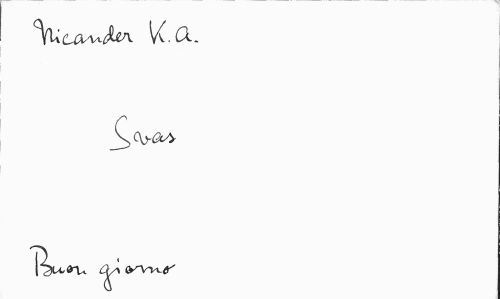 Nicander K.A.
Svas
Buon giorno